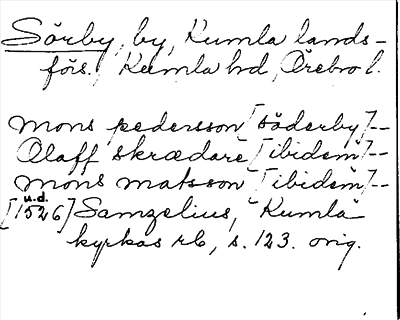 Sörby, by, Kumla lands-
förs., Kumla hd, Örebro l.
Mons pedersson [söderby]--
Olaff skrædare [ibidem]--
mons matsson [ibidem]--
u.d.
[1526] Samzelius, Kumla
kyrkas rb, s. 123. orig.